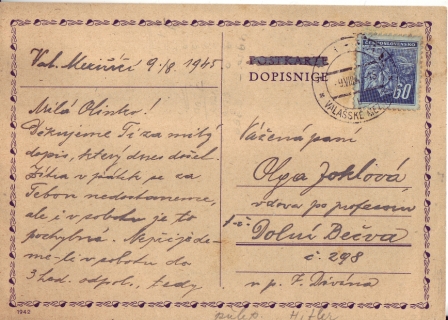 Val. Meziříčí 9./8. 1945
Milá Olinko!
Děkujeme Ti za milý
dopis, který dnes došel.
Zítra v pátek se za
Tebou nedostaneme,
ale i v sobotu je to
pochybné. Nepřijede-
me-li v sobotu do
3 hod. odpol., tedy
POSTKARTE
DOPISNICE
VALAŠSKÉ MEZ
60
Vážená paní
Olga Joklová
vdova po profesoru
Dolní Bečva
č. 298
u p. J. Divína
přelep. Hitler
1942